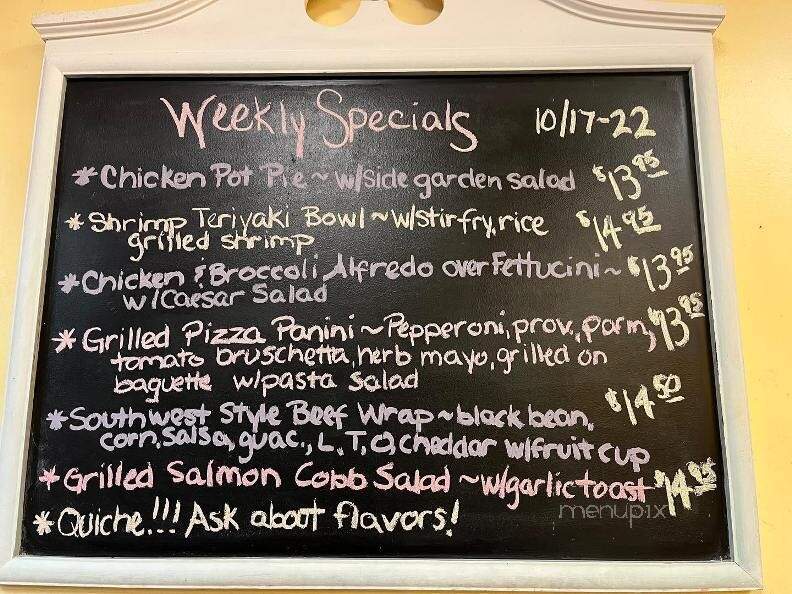 Weekly Specials 10/17-22
* Chicken Pot Pie ~ w/side garden salad $13.95
* Shrimp Teriyaki Bowl ~ w/stirfry, rice $14.95
grilled shrimp
* Chicken & Broccoli Alfredo over Fettucini ~ $13.95
w/Caesar Salad
* Grilled Pizza Panini ~ Pepperoni, prov., parm, $13.95
tomato bruschetta, herb mayo, grilled on
baguette w/pasta salad
* Southwest Style Beef Wrap ~ black bean, $14.50
corn, salsa, guac., L, T, O, cheddar w/fruit cup
* Grilled Salmon Cobb Salad ~ w/garlic toast $14.95
menupix
* Quiche!!! Ask about flavors!